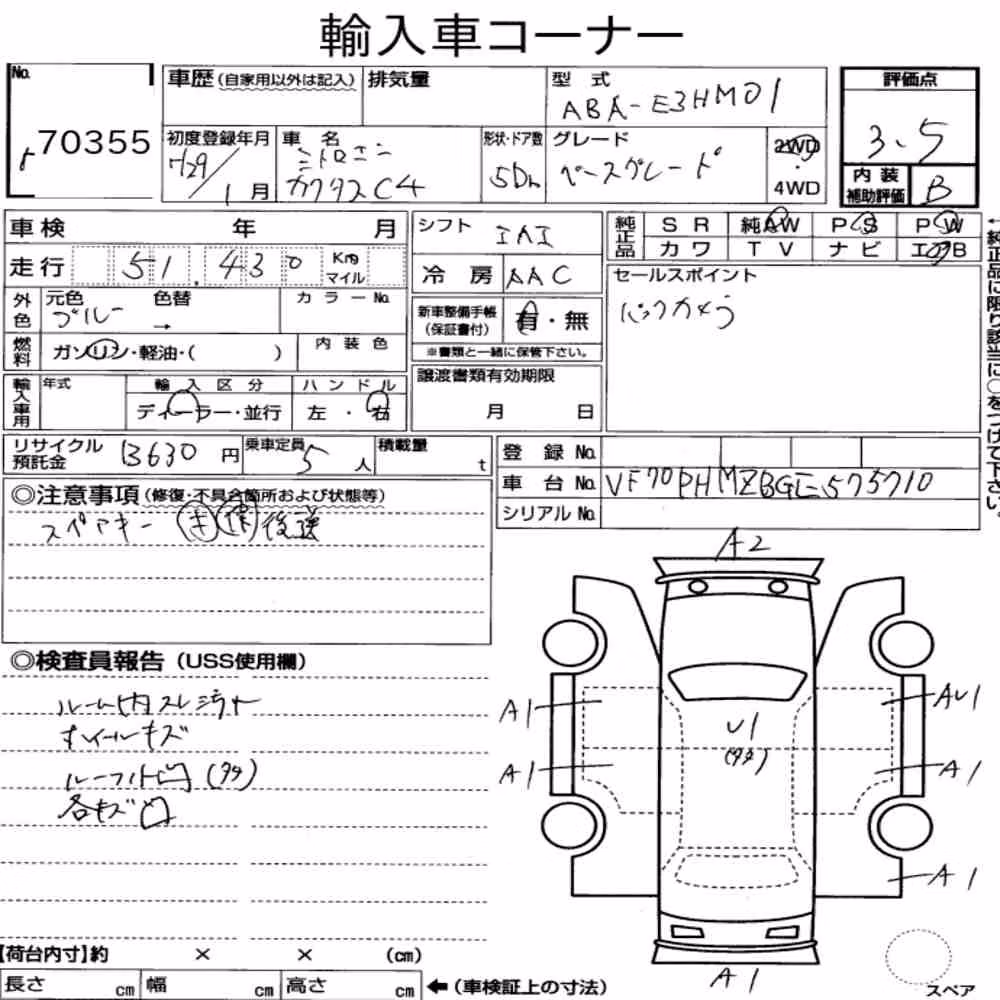 輸入車コーナー
No.
70355
車歴(自家用以外は記入)
排気量
型式
ABA-E3HM01
評価点
3.5
初度登録年月
29/1月
車名
シトロエン
カクタスC4
形状・ドア数
5Dr
グレード
ベースグレード
2WD
4WD
内装
補助評価
B
車検 年 月
シフト
IAI
純正品
SR 純AW PS PW
カワ TV ナビ エアB
走行
51,430 Km マイル
冷房
AAC
セールスポイント
バックカメラ
外色
元色
ブルー
色替
→
カラーNo.
新車整備手帳
(保証書付)
有・無
※書類と一緒に保管下さい。
燃料
ガソリン・軽油・( )
内装色
譲渡書類有効期限
月 日
輸入車用
年式
輸入区分
ディーラー・並行
ハンドル
左・右
←純正品に限り該当に○をつけて下さい。
リサイクル
預託金
13630円
乗車定員
5人
積載量
t
登録No.
車台No.
VF70PHMZBGE575710
シリアルNo.
◎注意事項(修復・不具合箇所および状態等)
スペアキー キ 保 後送
◎検査員報告(USS使用欄)
ルーム内スレ汚レ
ホイールキズ
ルーフ凹(タタ)
各キズ凹
A2
A1
AU1
U1
(タタ)
A1
A1
A1
A1
【荷台内寸】約 × × (cm)
長さ cm 幅 cm 高さ cm ←(車検証上の寸法)
スペア